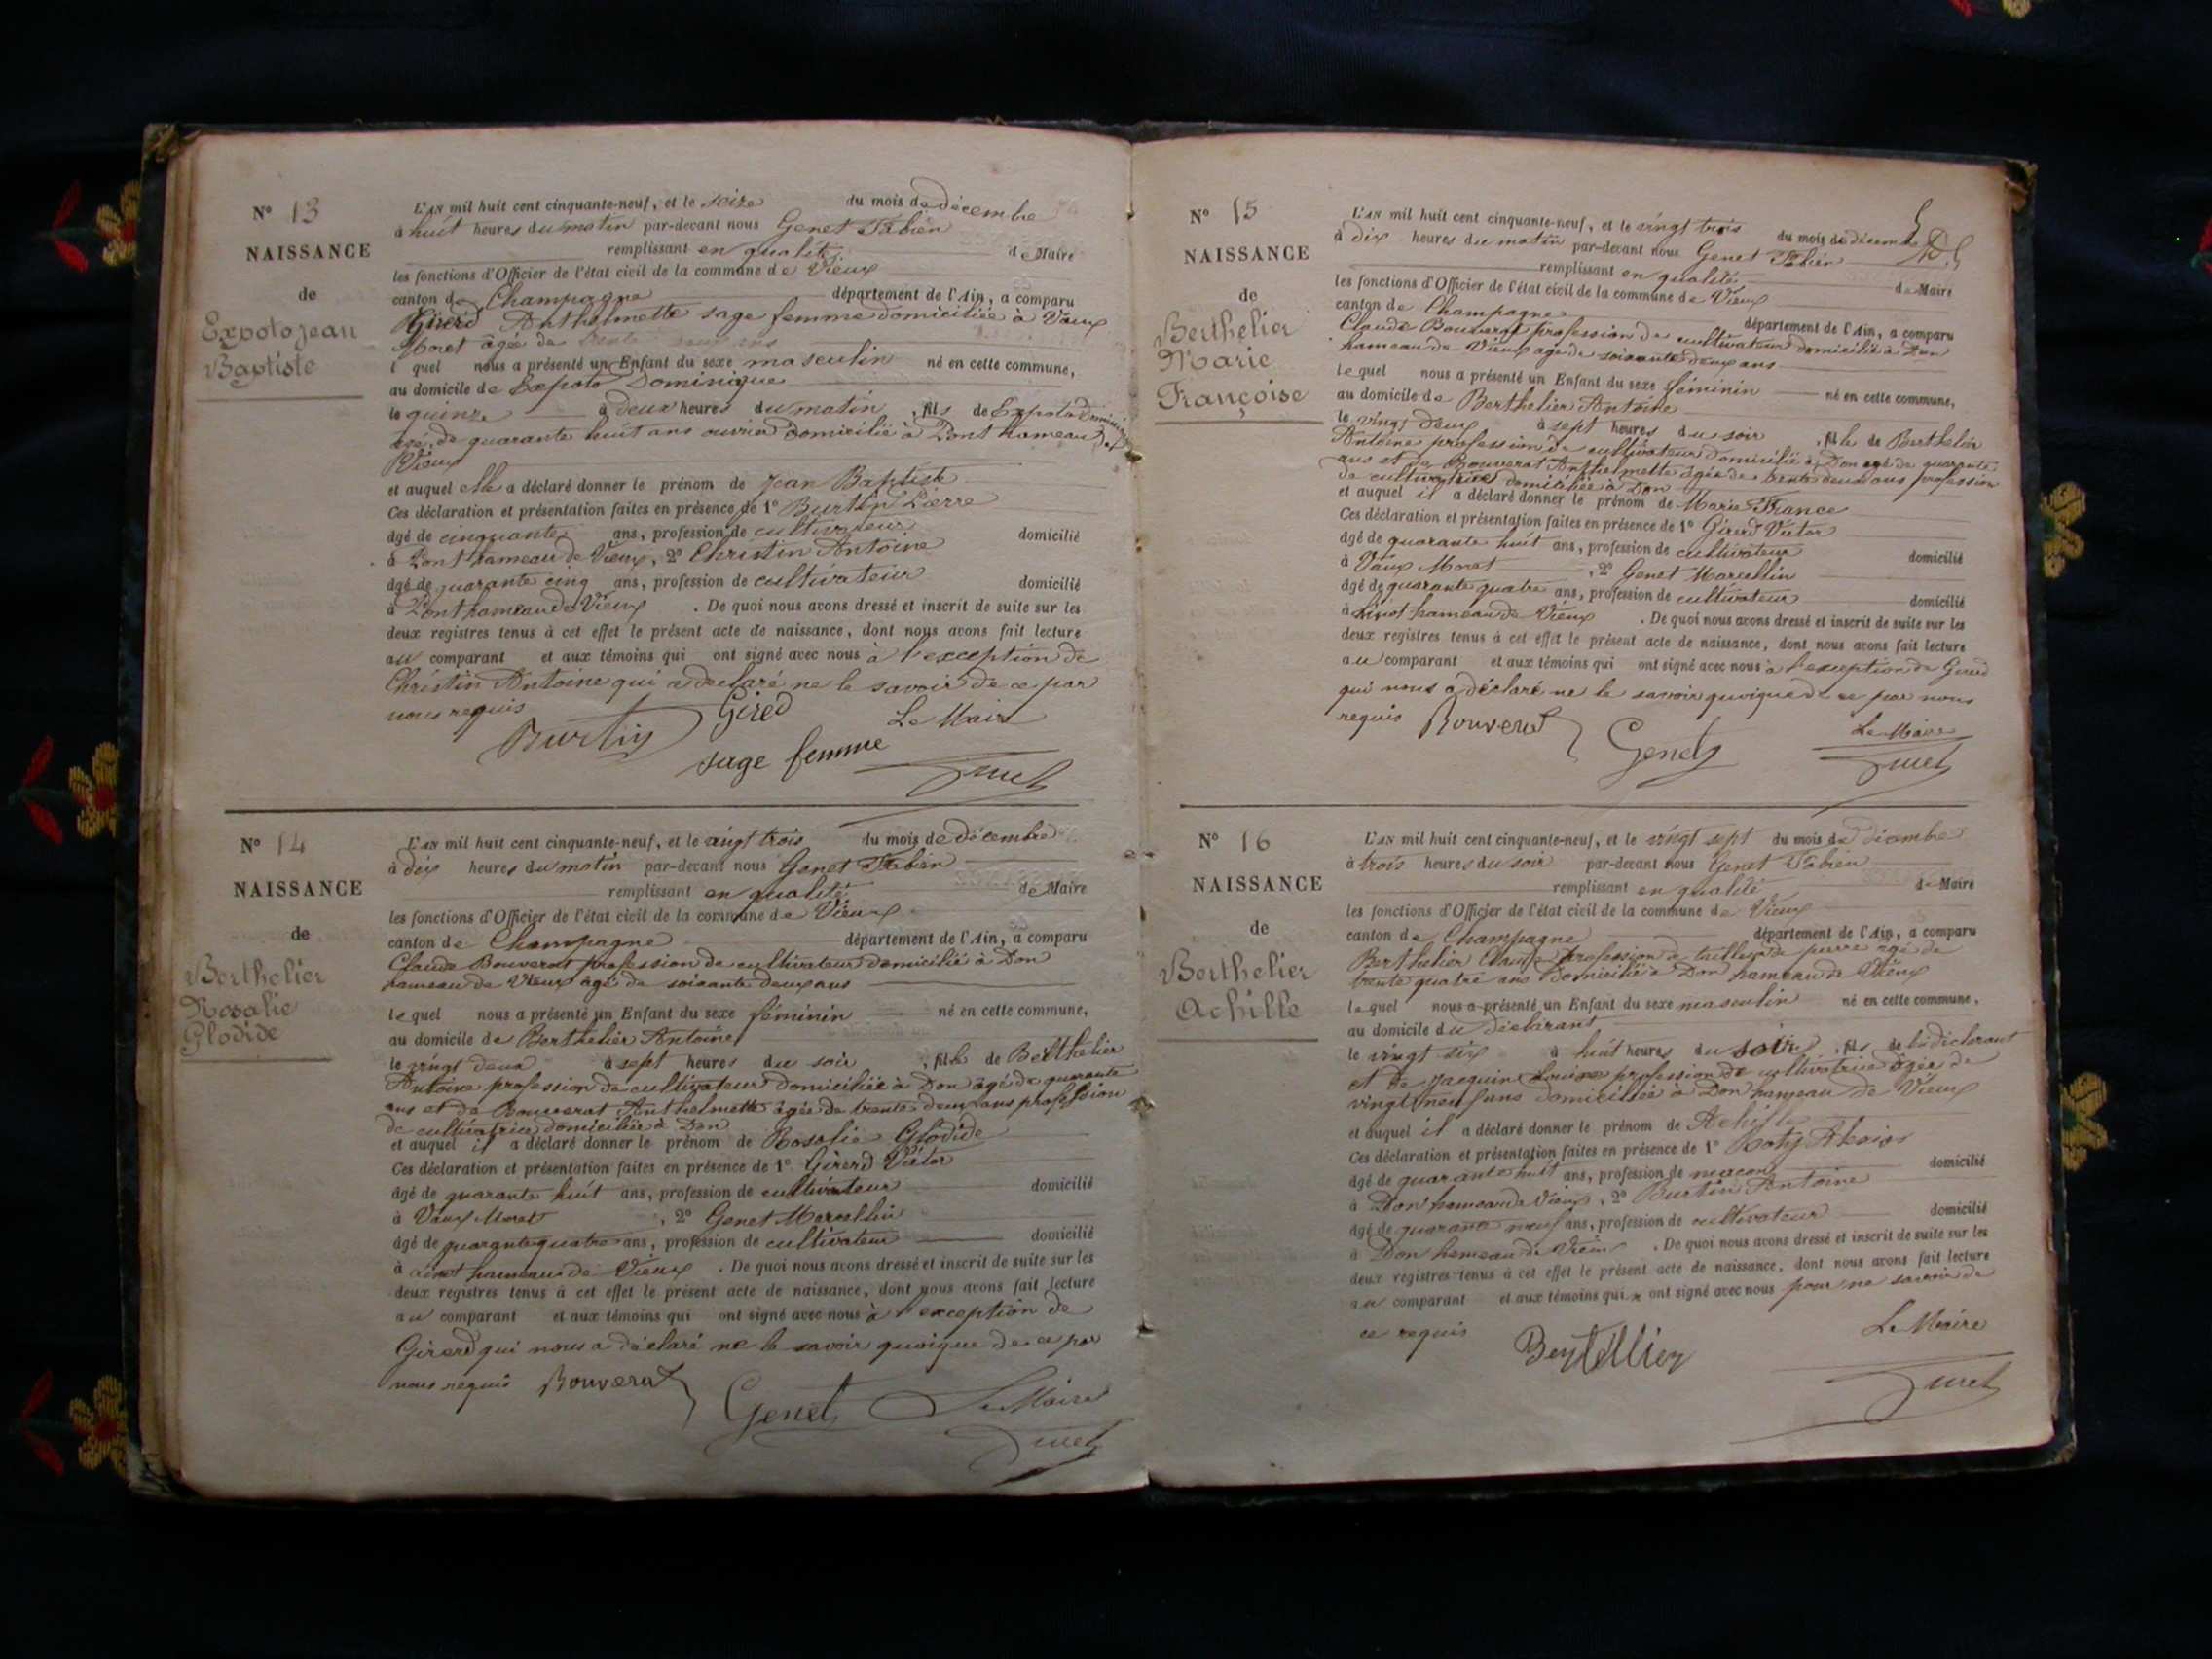 Nº 13
NAISSANCE
de
Expoto jean
Baptiste
L'AN mil huit cent cinquante-neuf, et le seize du mois de décembre
à huit heures du matin par-devant nous Genet Fabien
remplissant en qualité de Maire
les fonctions d'Officier de l'état civil de la commune de Vieux
canton de Champagne département de l'Ain, a comparu
Girerd Anthelmette sage femme domiciliée à Vaux
Moret agée de
l quel nous a présenté un Enfant du sexe masculin né en cette commune,
au domicile de Expoto Dominique
le quinze à deux heures du matin, fils de Expoto Dominique
agé de quarante huit ans ouvrier domicilié à Pont hameau de
Vieux
et auquel elle a déclaré donner le prénom de Jean Baptiste
Ces déclaration et présentation faites en présence de 1º Burtin Pierre
âgé de cinquante ans, profession de cultivateur domicilié
à Pont hameau de Vieux, 2º Christin Antoine
âgé de quarante cinq ans, profession de cultivateur domicilié
à Pont hameau de Vieux . De quoi nous avons dressé et inscrit de suite sur les
deux registres tenus à cet effet le présent acte de naissance, dont nous avons fait lecture
au comparant et aux témoins qui ont signé avec nous à l'exception de
Christin Antoine qui a déclaré ne le savoir de ce par
nous requis
Burtin Gired Le Maire
sage femme
Genet
Nº 14
NAISSANCE
de
Berthelier
Rosalie
Glodide
L'AN mil huit cent cinquante-neuf, et le vingt trois du mois de décembre
à dix heures du matin par-devant nous Genet Fabien
remplissant en qualité de Maire
les fonctions d'Officier de l'état civil de la commune de Vieux
canton de Champagne département de l'Ain, a comparu
Claude Bouverat profession de cultivateur domicilié à Don
hameau de Vieux âgé de soixante deux ans
lequel nous a présenté un Enfant du sexe féminin né en cette commune,
au domicile de Berthelier Antoine
le vingt deux à sept heures du soir, fille de Berthelier
Antoine profession de cultivateur domiciliée à Don âgé de quarante
ans et de Bouverat Anthelmette âgée de trente deux ans profession
de cultivatrice domiciliée à Don
et auquel il a déclaré donner le prénom de Rosalie Glodide
Ces déclaration et présentation faites en présence de 1º Girerd Victor
âgé de quarante huit ans, profession de cultivateur domicilié
à Vaux Moret, 2º Genet Marcellin
âgé de quarante quatre ans, profession de cultivateur domicilié
à hameau de Vieux . De quoi nous avons dressé et inscrit de suite sur les
deux registres tenus à cet effet le présent acte de naissance, dont nous avons fait lecture
au comparant et aux témoins qui ont signé avec nous à l'exception de
Girerd qui nous a déclaré ne le savoir quoique de ce par
nous requis Bouverat Genet Le Maire
Genet
Nº 15
NAISSANCE
de
Berthelier
Marie
Françoise
L'AN mil huit cent cinquante-neuf, et le vingt trois du mois de décembre
à dix heures du matin par-devant nous Genet Fabien
remplissant en qualité de Maire
les fonctions d'Officier de l'état civil de la commune de Vieux
canton de Champagne département de l'Ain, a comparu
Claude Bouverat profession de cultivateur domicilié à Don
hameau de Vieux agé de soixante deux ans
lequel nous a présenté un Enfant du sexe féminin né en cette commune,
au domicile de Berthelier Antoine
le vingt deux à sept heures du soir, fille de Berthelier
Antoine profession de cultivateur domicilié à Don agé de quarante
ans et de Bouverat Anthelmette âgée de trente deux ans profession
de cultivatrice domiciliée à Don
et auquel il a déclaré donner le prénom de Marie France
Ces déclaration et présentation faites en présence de 1º Girerd Victor
âgé de quarante huit ans, profession de cultivateur domicilié
à Vaux Moret, 2º Genet Marcellin
âgé de quarante quatre ans, profession de cultivateur domicilié
à hameau de Vieux . De quoi nous avons dressé et inscrit de suite sur les
deux registres tenus à cet effet le présent acte de naissance, dont nous avons fait lecture
au comparant et aux témoins qui ont signé avec nous à l'exception de Girerd
qui nous a déclaré ne le savoir quoique de ce par nous
requis Bouverat Genet Le Maire
Genet
Nº 16
NAISSANCE
de
Berthelier
Achille
L'AN mil huit cent cinquante-neuf, et le vingt sept du mois de décembre
à trois heures du soir par-devant nous Genet Fabien
remplissant en qualité de Maire
les fonctions d'Officier de l'état civil de la commune de Vieux
canton de Champagne département de l'Ain, a comparu
Berthelier Claude profession de tailleur de pierre âgé de
trente quatre ans domicilié à Don hameau de Vieux
lequel nous a présenté un Enfant du sexe masculin né en cette commune,
au domicile du déclarant
le vingt six à huit heures du soir, fils de le déclarant
et de Jacquin Louise profession de cultivatrice âgée de
vingt neuf ans domiciliée à Don hameau de Vieux
et auquel il a déclaré donner le prénom de Achille
Ces déclaration et présentation faites en présence de 1º
âgé de quarante huit ans, profession de maçon domicilié
à Don hameau de Vieux, 2º Burtin Antoine
âgé de quarante neuf ans, profession de cultivateur domicilié
à Don hameau de Vieux . De quoi nous avons dressé et inscrit de suite sur les
deux registres tenus à cet effet le présent acte de naissance, dont nous avons fait lecture
au comparant et aux témoins qui ont signé avec nous pour ne savoir de
ce requis Bertellier Le Maire
Genet